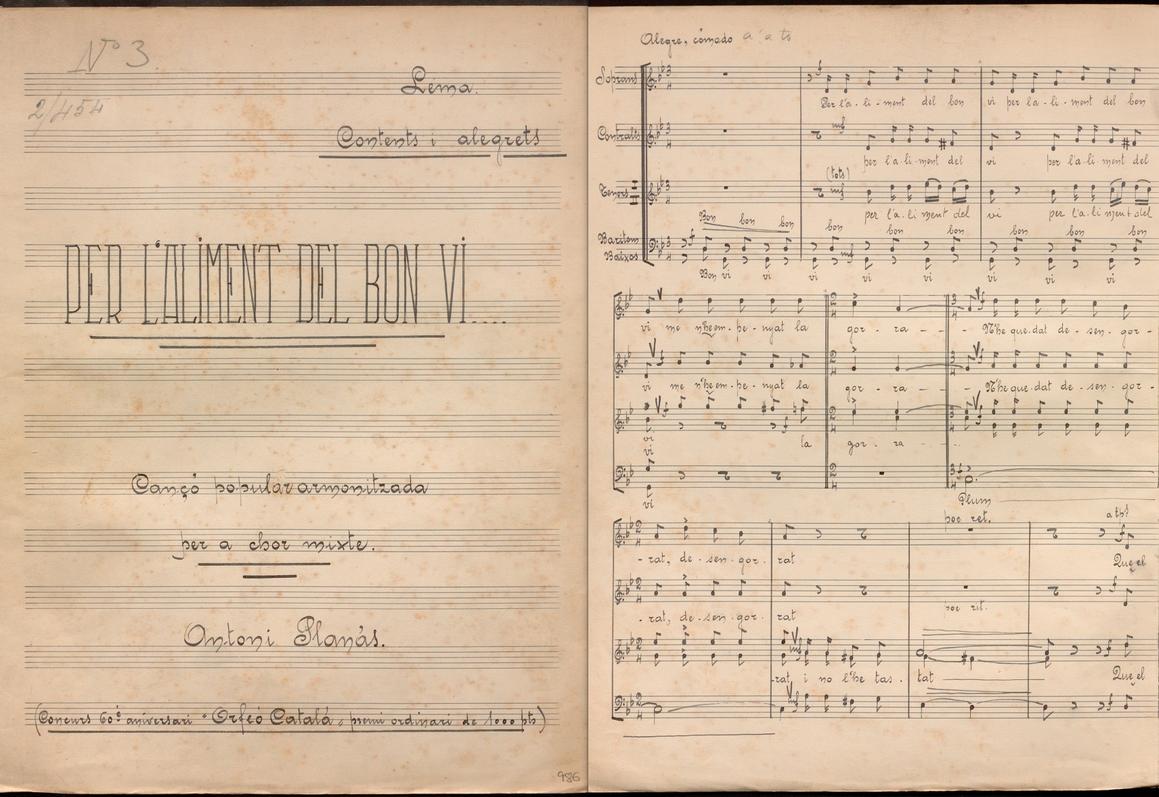 Nº 3
2/454
Lema.
Contents i alegrets
PER L'ALIMENT DEL BON VÍ....
Cançó popular armonitzada
per a chor mixte.
Antoni Planás.
(Concurs 60è aniversari "Orfeó Catalá" premi ordinari de 1000 pts)
986
Alegre, cómodo
Soprans
Per l'a - li - ment del bon vi per l'a - li - ment del bon
Contralts
mf
per l'a - li - ment del vi per l'a - li - ment del
Tenors I II
(tots)
mf
per l'a - li - ment del vi per l'a - li - ment del
Bon bon bon bon bon bon bon bon bon
Barítons
Baixos
mf
Bon vi vi vi vi vi vi vi vi vi
vi me n'he em - pe - nyat la gor - ra - - - N'he que - dat de - sen - gor -
vi me n'he em - pe - nyat la gor - ra - - - N'he que - dat de - sen - gor -
vi
vi la gor - ra - - -
vi
Plum
poc ret.
- rat, de - sen - gor - rat Que el
poc rit.
- rat, de - sen - gor - rat
mf
rat i no l'he tas - tat Que el